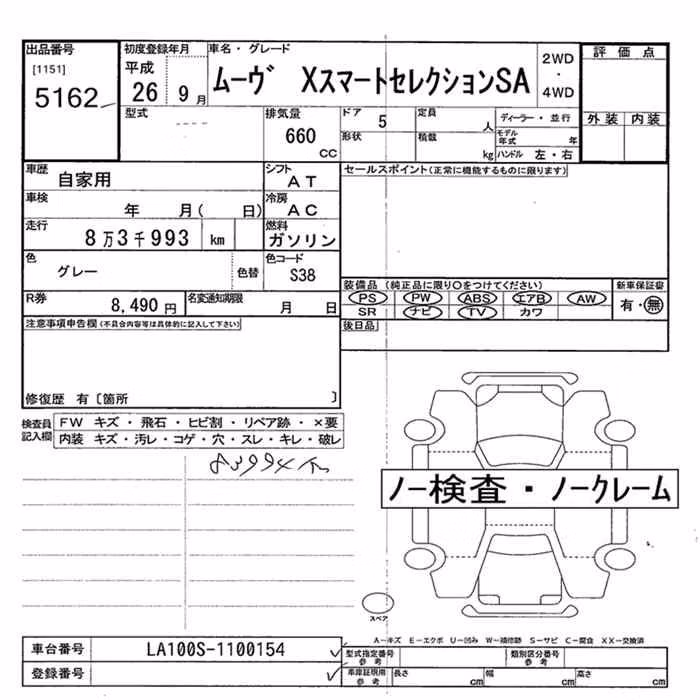 出品番号
[1151]
5162
初度登録年月
平成
26 9月
車名・グレード
ムーヴ XスマートセレクションSA
2WD
・
4WD
評価点
外装 内装
型式
排気量
660
cc
ドア
5
形状
定員
人
積載
kg
ディーラー・並行
モデル年式
年
ハンドル 左・右
車歴
自家用
シフト
AT
車検
年 月( 日)
冷房
AC
走行
8万3千993 km
燃料
ガソリン
色
グレー
色替
色コード
S38
R券
8,490 円
名変通知期限
月 日
セールスポイント(正常に機能するものに限ります)
装備品(純正品に限り○をつけてください)
PS PW ABS エアB AW
SR ナビ TV カワ
新車保証書
有・無
後日品
注意事項申告欄(不具合内容等は具体的に記入して下さい)
修復歴 有〔箇所 〕
検査員
記入欄
FW キズ・飛石・ヒビ割・リペア跡・×要
内装 キズ・汚レ・コゲ・穴・スレ・キレ・破レ
83994
ノー検査・ノークレーム
スペア
A−キズ E−エクボ U−凹み W−補修跡 S−サビ C−腐食 XX−交換済
車台番号
LA100S-1100154
登録番号
型式指定番号
参考
類別区分番号
参考
車庫証明用
参考
長さ
cm
幅
cm
高さ
cm